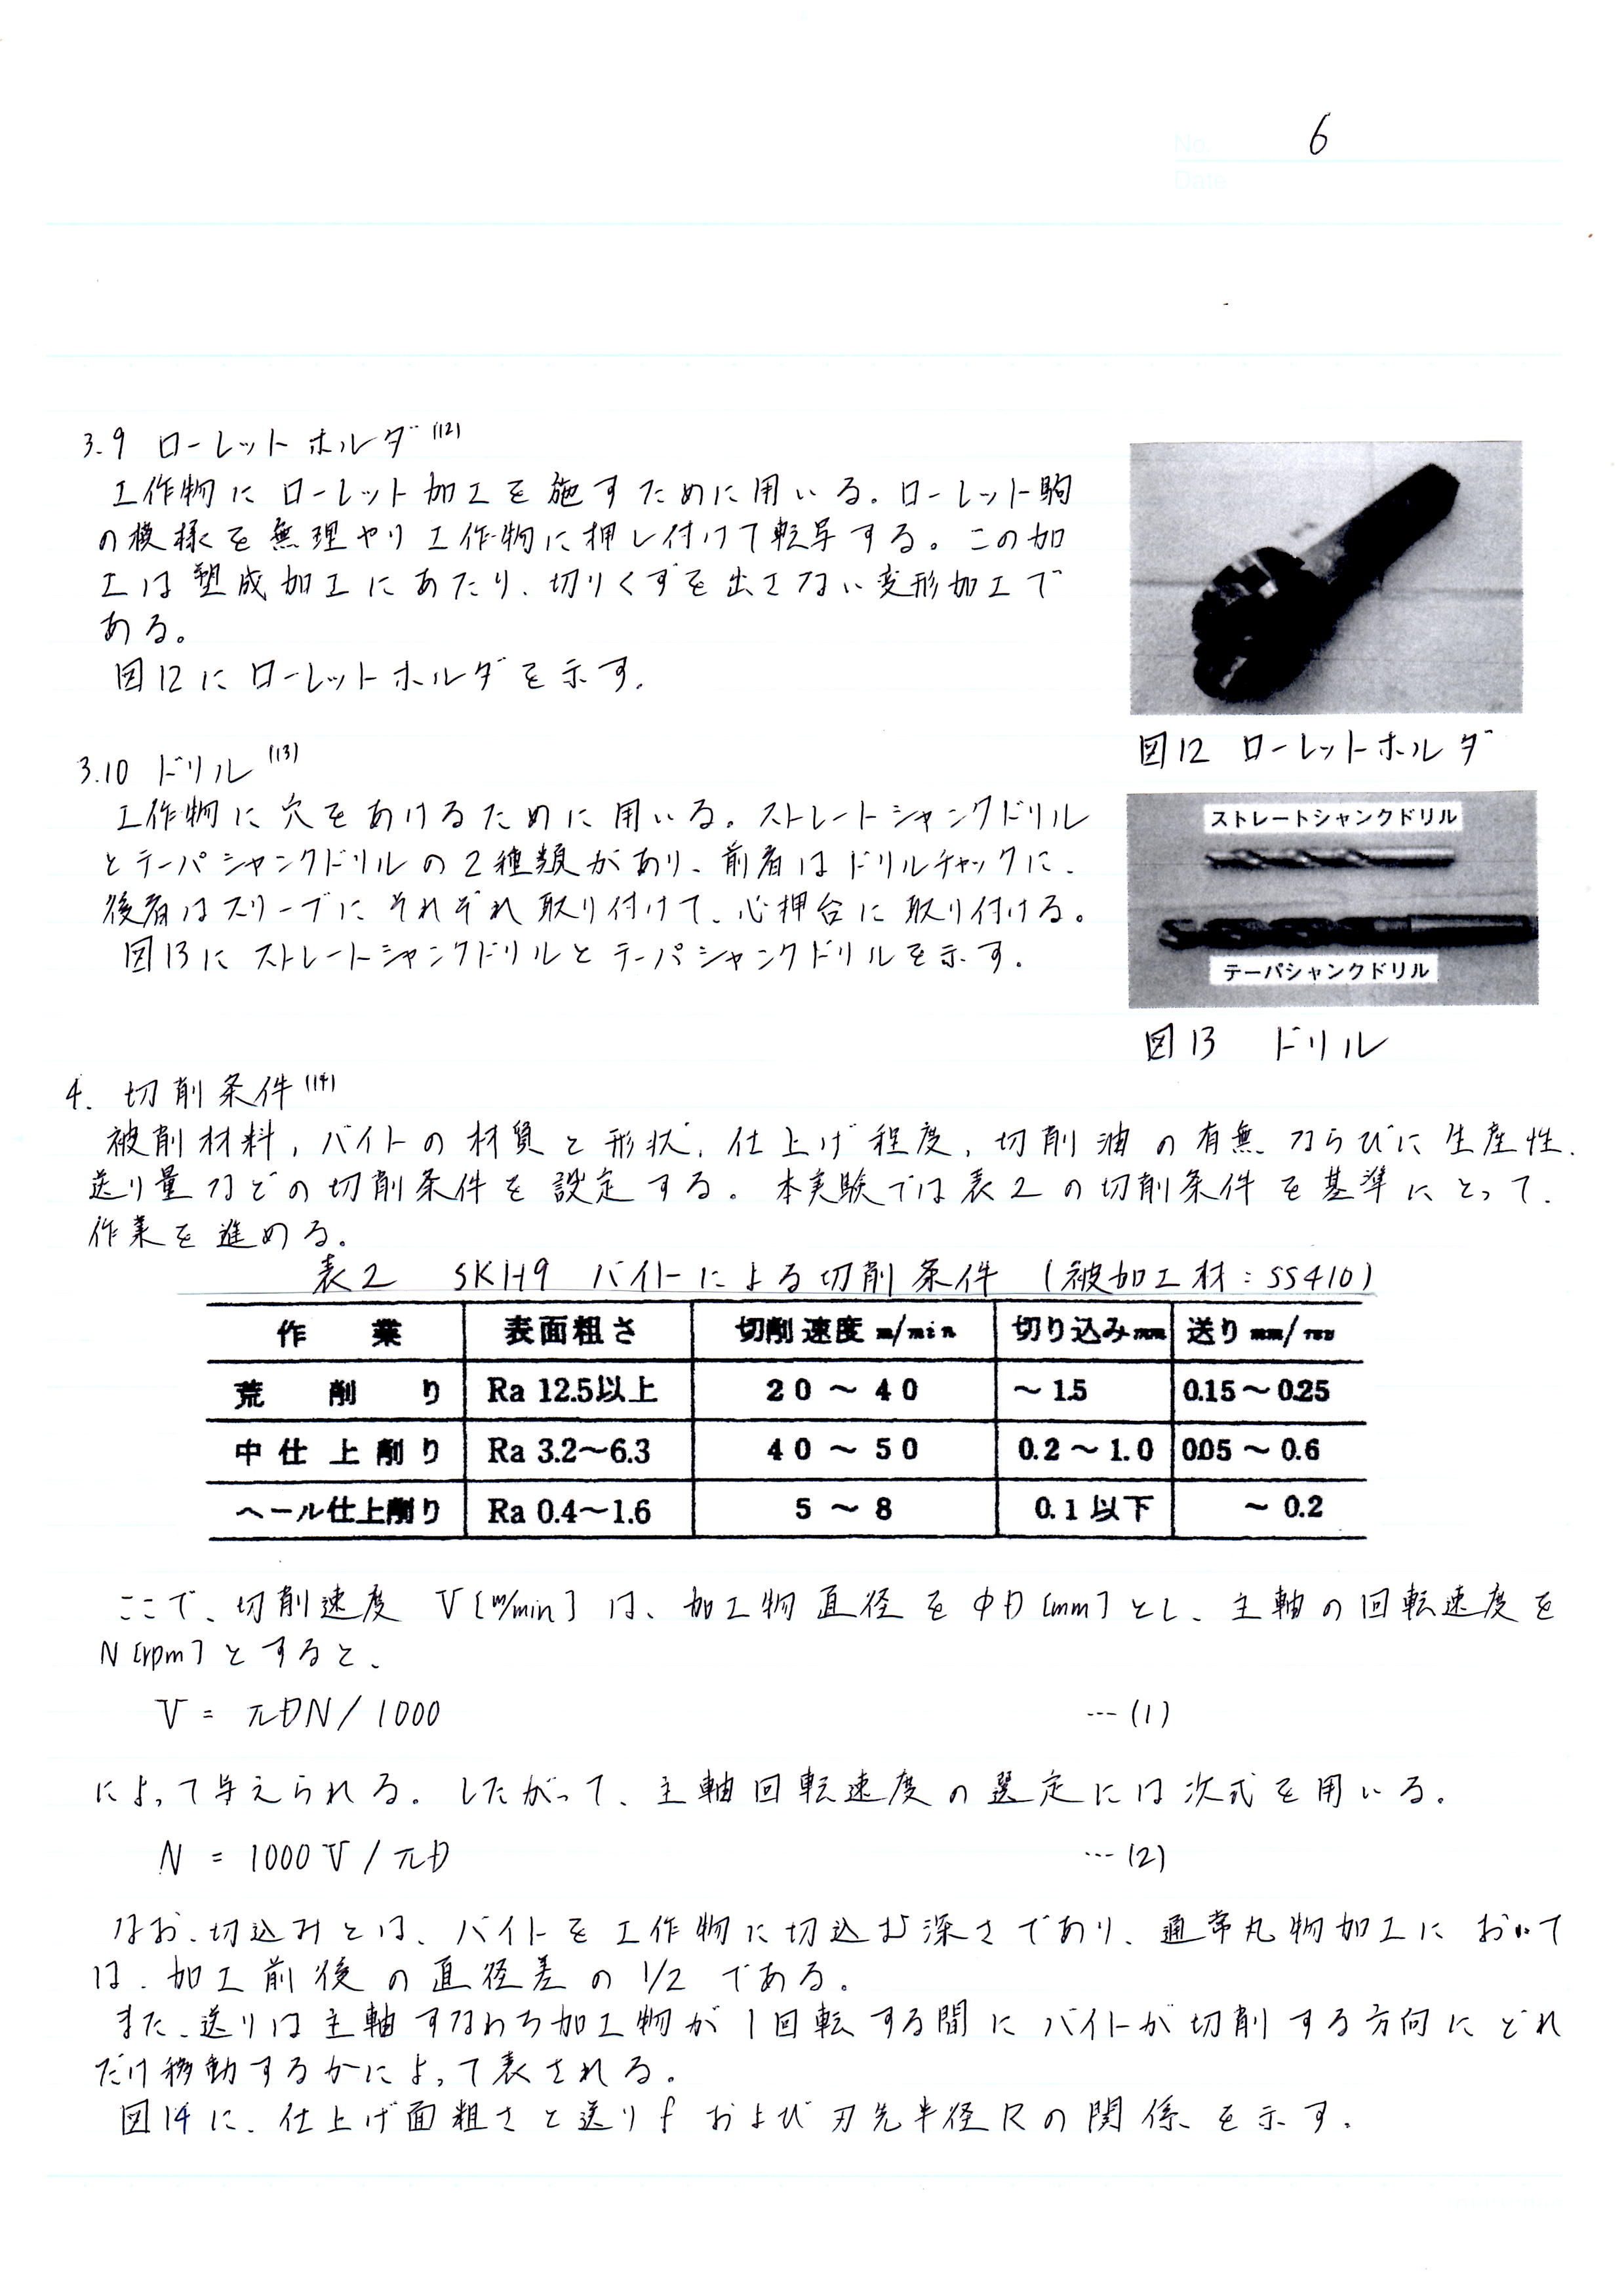 No. 6
Date
3.9 ローレットホルダ(12)
工作物にローレット加工を施すために用いる。ローレット駒
の模様を無理やり工作物に押し付けて転写する。この加
工は塑成加工にあたり、切りくずを出さない変形加工で
ある。
図12にローレットホルダを示す。
図12 ローレットホルダ
3.10 ドリル(13)
工作物に穴をあけるために用いる。ストレートシャンクドリル
とテーパシャンクドリルの2種類があり、前者はドリルチャックに、
後者はスリーブにそれぞれ取り付けて、心押台に取り付ける。
図13にストレートシャンクドリルとテーパシャンクドリルを示す。
ストレートシャンクドリル
テーパシャンクドリル
図13 ドリル
4. 切削条件(14)
被削材料,バイトの材質と形状,仕上げ程度,切削油の有無ならびに生産性、
送り量などの切削条件を設定する。本実験では表2の切削条件を基準にとって、
作業を進める。
表2 SKH9 バイトによる切削条件 (被加工材:SS410)
作業 表面粗さ 切削速度 m/min 切り込みmm 送り mm/rev
荒削り Ra 12.5以上 20〜40 〜1.5 0.15〜0.25
中仕上削り Ra 3.2〜6.3 40〜50 0.2〜1.0 0.05〜0.6
ヘール仕上削り Ra 0.4〜1.6 5〜8 0.1以下 〜0.2
ここで、切削速度 V[m/min]は、加工物直径をΦD[mm]とし、主軸の回転速度を
N[rpm]とすると、
V = πDN/1000 …(1)
によって与えられる。したがって、主軸回転速度の選定には次式を用いる。
N = 1000V/πD …(2)
なお、切込みとは、バイトを工作物に切込む深さであり、通常丸物加工において
は、加工前後の直径差の1/2である。
また、送りは主軸すなわち加工物が1回転する間にバイトが切削する方向にどれ
だけ移動するかによって表される。
図14に、仕上げ面粗さと送りfおよび刃先半径Rの関係を示す。